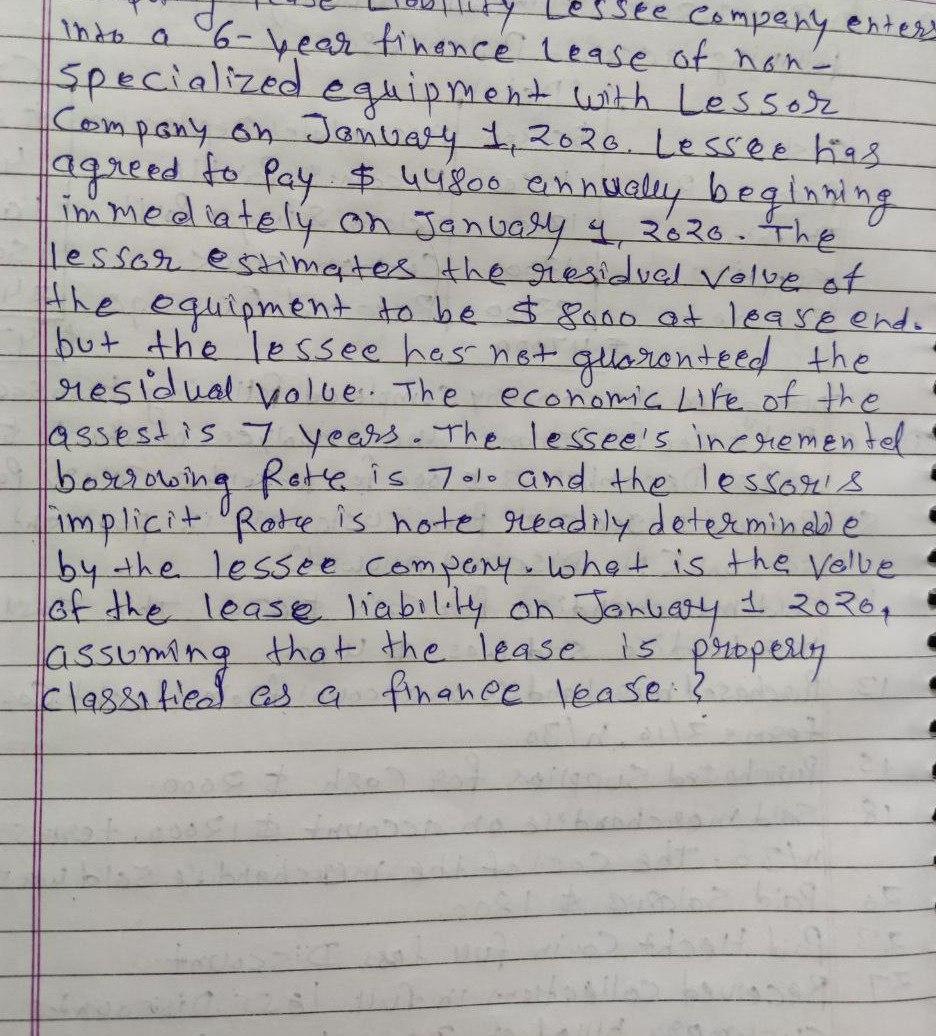 Lease Liability Lessee company enters
into a 6-year finance lease of non-
specialized equipment with Lessor
Company on January 1, 2020. Lessee has
agreed to Pay $ 44800 annually beginning
immediately on January 1, 2020. The
lessor estimates the residual value of
the equipment to be $ 8000 at lease end.
but the lessee has not guaronteed the
residual value. The economic Life of the
assest is 7 years. The lessee's incremental
borrowing Rate is 7% and the lessor's
implicit Rate is note readily determinable
by the lessee company. What is the value
of the lease liability on January 1 2020,
assuming that the lease is properly
classified as a finance lease ?